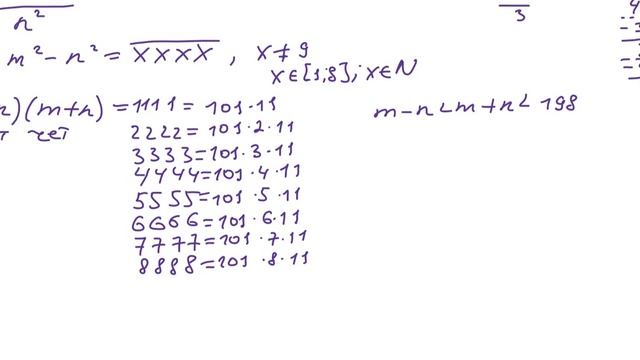 n²
3
m² - n² = XXXX, x ≠ 9
x ∈ [1,8]; x ∈ N
)(m+n) = 1111 = 101·11
чет
m-n < m+n < 198
2222 = 101·2·11
3333 = 101·3·11
4444 = 101·4·11
5555 = 101·5·11
6666 = 101·6·11
7777 = 101·7·11
8888 = 101·8·11